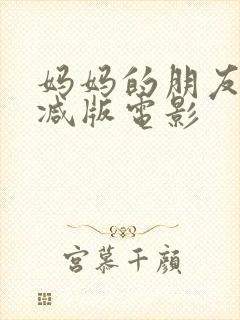 妈妈的朋友
减版电影
宫慕千颜